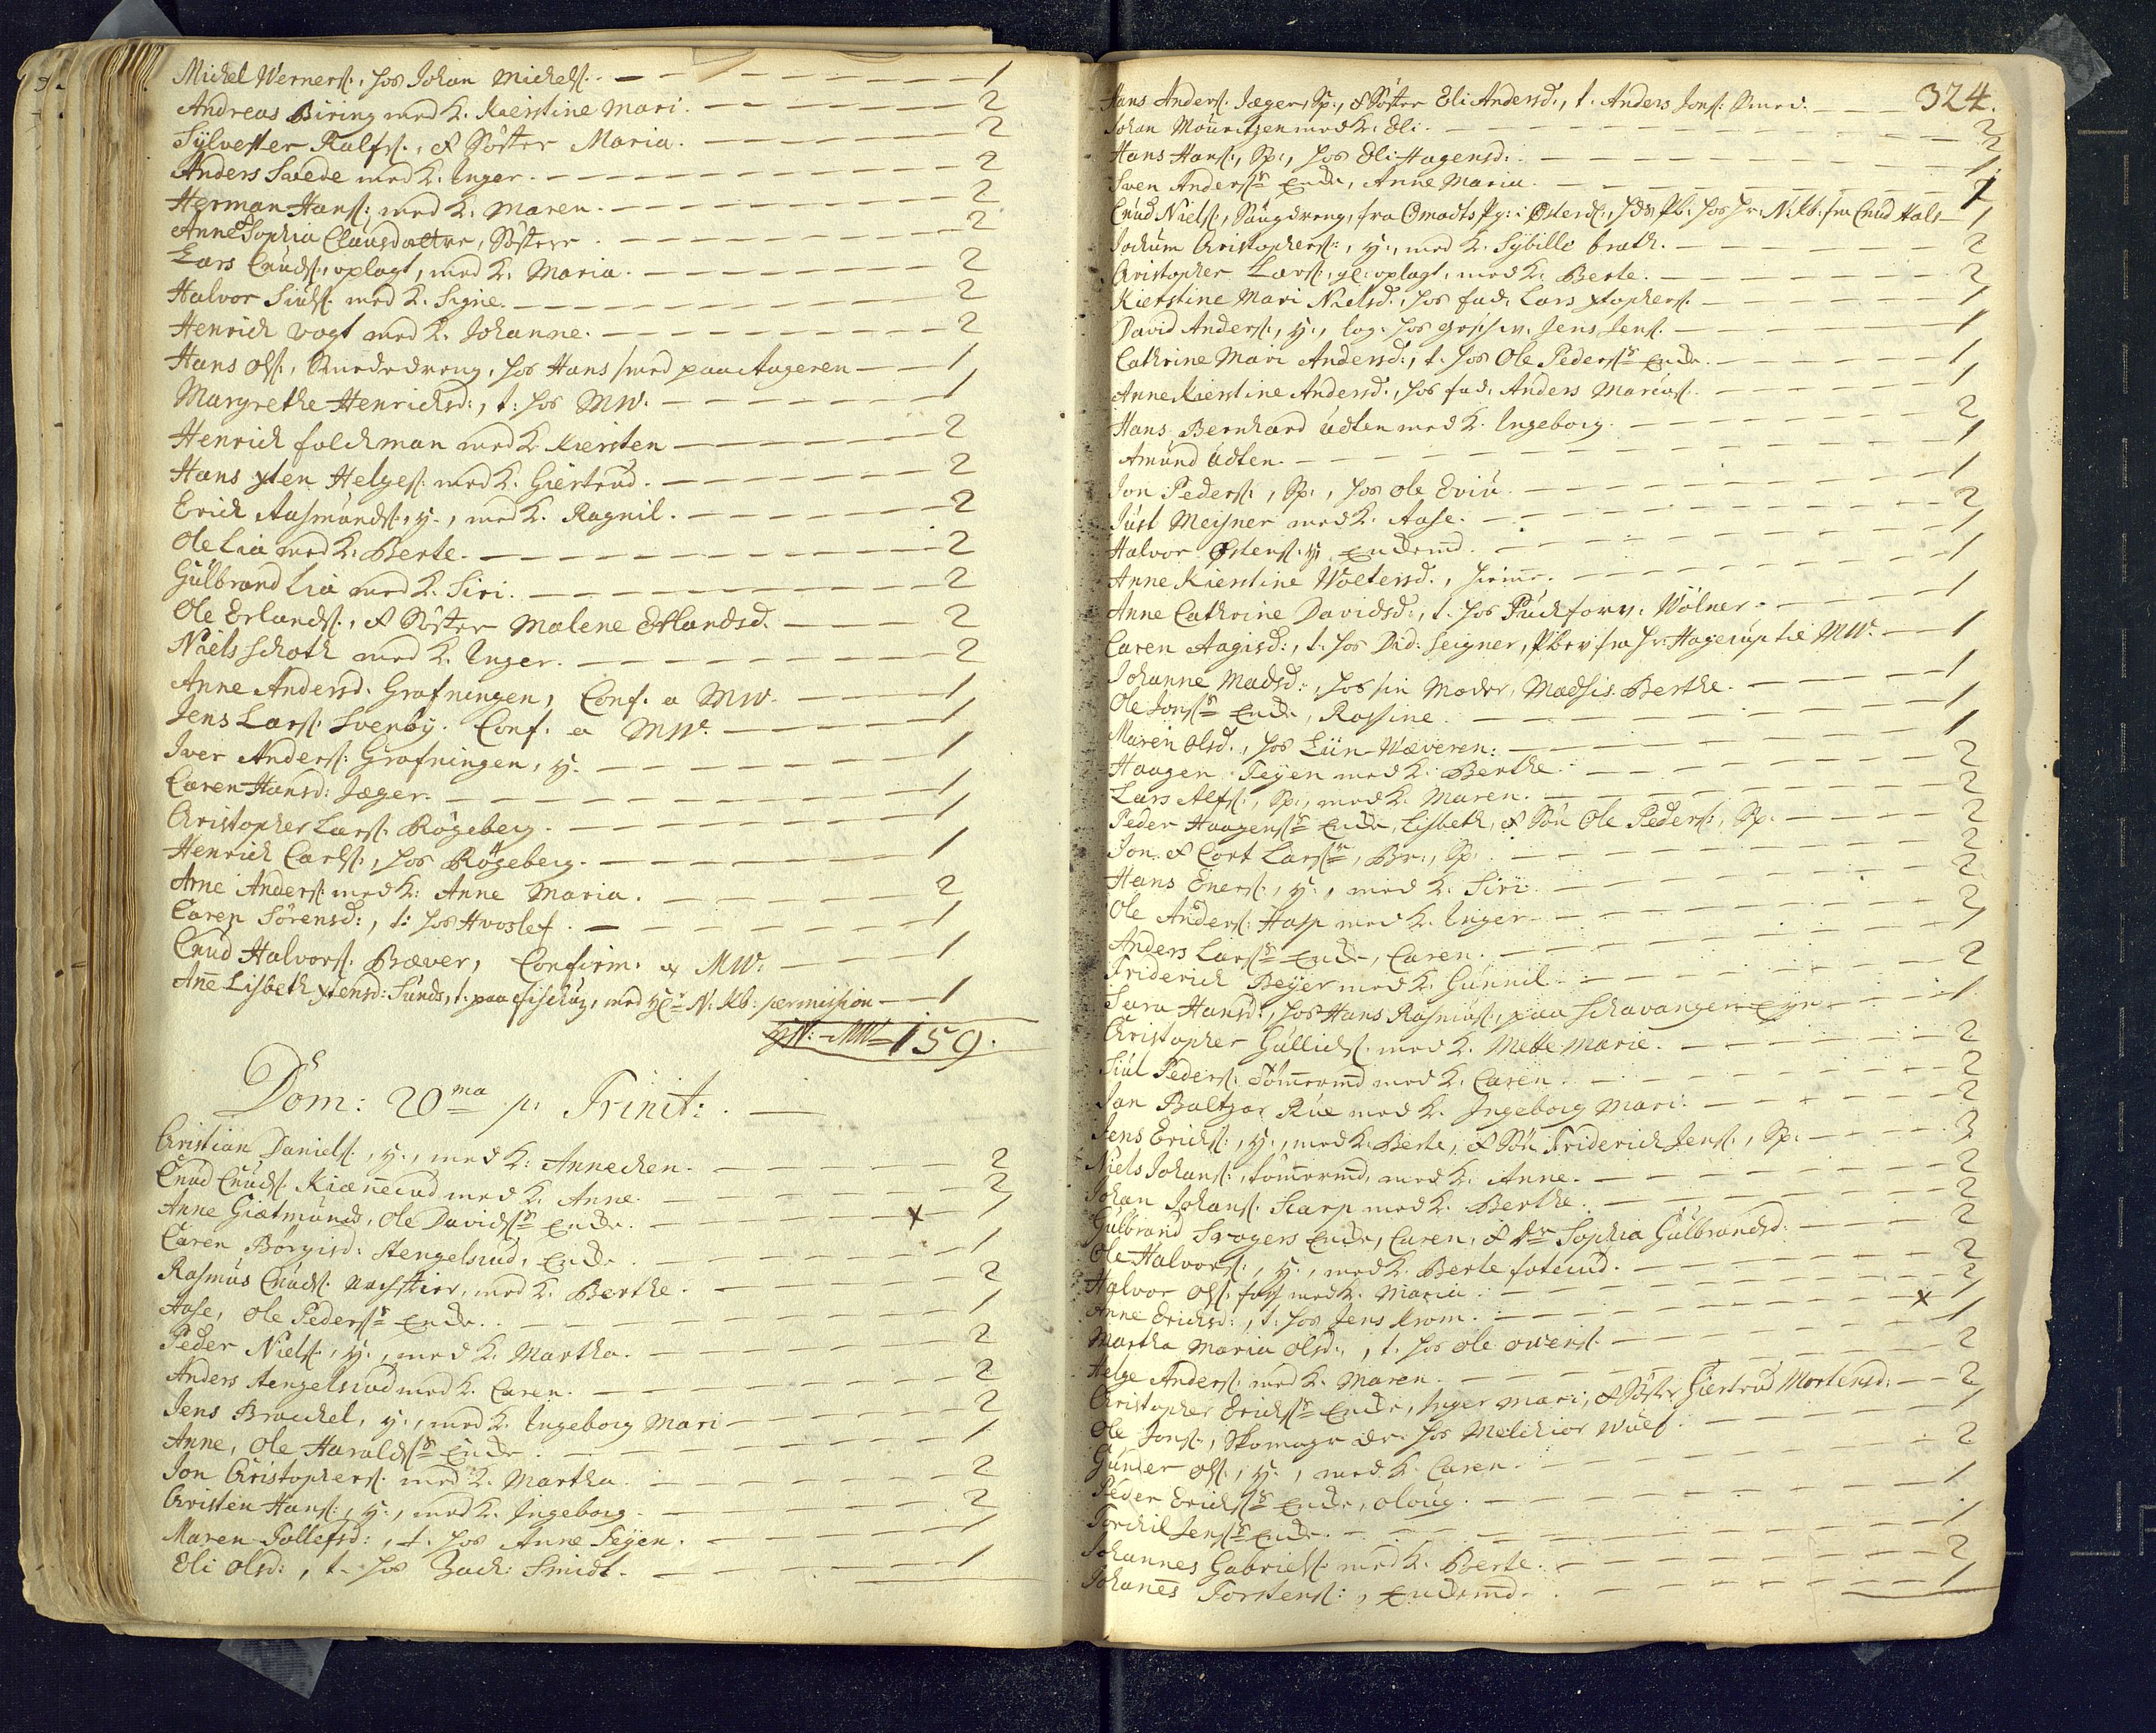 Michel Werners: hos Johan Michels. 1
Andreas Biring med K. Kierstine Mari. 2
Sÿlvester Ralfs:, & Søster Maria. 2
Anders Svede med K. Inger. 2
Herman Hans: med K. Maren. 2
Anne Sophia Clausdatter, Søstere 2
Lars Cnuds:, oplagt, med K. Maria. 2
Halvor Siuls. med K. Signe. 2
Henrich Vogt med K. Johanne. 2
Hans Ols:, Smededreng, hos Hans smed paa Aageren 1
Margrethe Henrichsd:, t: hos MW. 1
Henrich Folchman med K. Kiersten 2
Hans Xten Helges. med K. Giertrud. 2
Erich Aasmunds:, y., med K. Ragnil. 2
Ole Lia med K. Berte. 2
Gulbrand Lia med K. Siri. 2
Ole Erlands:, & Søster Malene Erlandsd. 2
Niels Schoth med K. Inger. 2
Anne Andersd. Grafningen, Conf. a MW. 1
Jens Lars: Svenbÿ. Conf. a MW. 1
Iver Anders: Grafningen, y. 1
Caren Hansd: Jæger. 1
Christopher Lars: Røgeberg. 1
Henrich Carls:, hos Røgeberg. 1
Arne Anders: med K: Anne Maria. 2
Caren Sørensd:, t: hos Hvoslef. 1
Cnud Halvors: Bæver, Confirm. a MW: 1
Anne Lisbeth Xtensd: Sunds, t. paa med N: Kb: permission 1
159.
Dom: 20ma p. Trinit:
Christian Daniels:, y., med K: Annechen. 2
Cnud Cnuds. Kiænnerud med K. Anne. 2
Anne Giætmunds, Ole Davidsns Encke. x 1
Caren Børgisd: Stengelsrud, Encke. 1
Rasmus Cnuds. med K. Berthe. 2
Aase, Ole Pedersns Encke. 1
Peder Niels:, y., med K. Martha. 2
Anders Stengelsrud med K. Caren. 2
Jens Brachel, y., med K. Ingeborg Mari 2
Anne, Ole Haraldsns Encke. 1
Jon Christophers: med K. Martha. 2
Christen Hans:, y., med K. Ingeborg. 2
Maren Tollefsd:, t. hos Anne Feÿen. 1
Eli Olsd:, t. hos Zach: Smidt. 1
324.
Hans Anders: Jæger, Sp:, & Søster Eli Andersd:, t. Anders Jons: Smed. 2
Johan Mouritzen med K: Eli. 2
Hans Hans:, Sp:, hos Eli Hagensd: 1
Sven Andersns Encke, Anne Maria. 1
Cnud Niels:, fra Omodts Pg: i Østerd:, hos Hr: N: Kb: fra Cnud Hals 1
Jochum Christophers:, y., med K. Sÿbille Brath. 2
Christopher Lars:, oplagt, med K. Berte. 2
Kierstine Mari Nielsd., hos fad: Lars Xtophers: 1
David Anders:, y., log: hos Jens Jens: 1
Cathrine Mari Andersd:, t. hos Ole Pedersns Encke. 1
Anne Kierstine Andersd., hos fad: Anders Marcus. 1
Hans Bernhard Udten med K. Ingeborg. 2
Amund Udten. 1
Jon Peders:, Sp:, hos Ole Eviu. 1
Just Meisner med K. Aase. 2
Halvor Østens: y. Enckemd. 1
Anne Kierstine Woltersd., 1
Anne Cathrine Davidsd:, t. hos Puchforv: Wolner 1
Caren Aagisd:, t. hos Did: Seigner, fra Hr: Hagerup til MW. 1
Johanne Madsd:, hos sin Moder, Madsis Berthe. 1
Ole Jonsns Encke, Rossine. 1
Maren Olsd., hos Liin-Wæveren: 1
Haagen Feÿen med K. Berthe. 2
Lars Alfs:, Sp:, med K. Maren. 2
Peder Haagensns Encke, Lisbeth, & Søn Ole Peders:, Sp. 2
Jon & Cort Larsnr, Br:, Sp: 2
Hans Eners:, y:, med K. Siri. 2
Ole Anders: Hasp med K. Inger 2
Anders Larsns Encke, Caren. 1
Friderich Beÿer med K. Gunnil. 2
Sara Hansd:, hos Hans Rasmus:, paa Schavanger Eye 1
Christopher Gullichs. med K. Mette Marie. 2
Siul Peders: Tømermd med K. Caren. 2
Jan Baltzar Rue med K. Ingeborg Mari. 2
Jens Erichs:, y., med K. Berte, & Søn Friderich Jens:, Sp: 3
Niels Johans:, tømermd, med K. Anne. 2
Johan Johans: Scarp med K. Berthe. 2
Gulbrand Svagers Encke, Caren, & Dr Sophia Gulbrandsd: 2
Ole Halvors:, y., med K. Berte Foterud. 2
Halvor Ols: Foss med K. Maria. 2
Anne Erichsd:, t. hos Jens Krom. x 1
Martha Maria Olsd:, t. hos Ole Overs: 1
Helge Anders: med K. Maren. 2
Christopher Erichsns Encke, Inger Mari, & Søster Giertrud Mortensd: 2
Ole Jons:, Skomager dr: hos Melchior Wulf. 1
Gunder Ols:, y., med K. Caren. 2
Peder Erichsns Encke, Oloug. 1
Torchil Jensns Encke. 1
Johannes Gabriels: med K. Berte. 2
Johanes Torstens:, Enckemd. 1